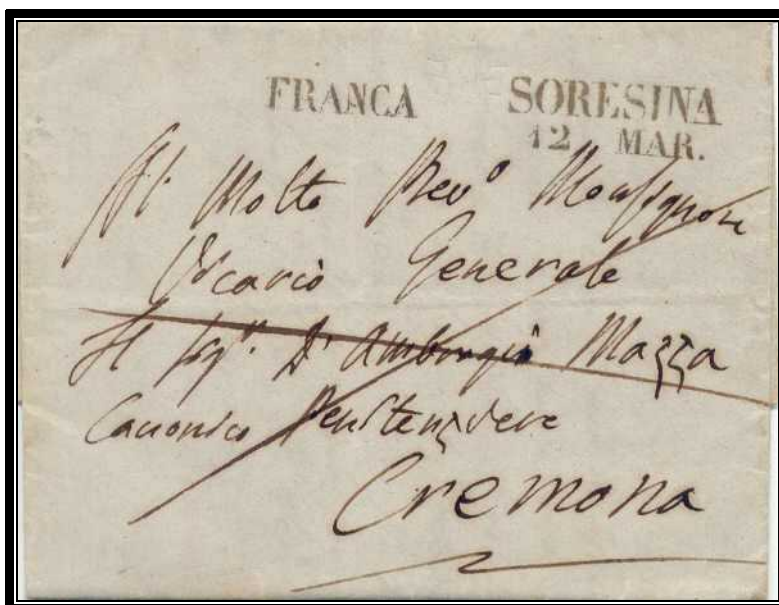 FRANCA SORESINA
12 MAR.
Al Molto Rev.º Monsignore
Vicario Generale
Il Sig.r D. Ambrogio Mazza
Canonico Penitenziere
Cremona